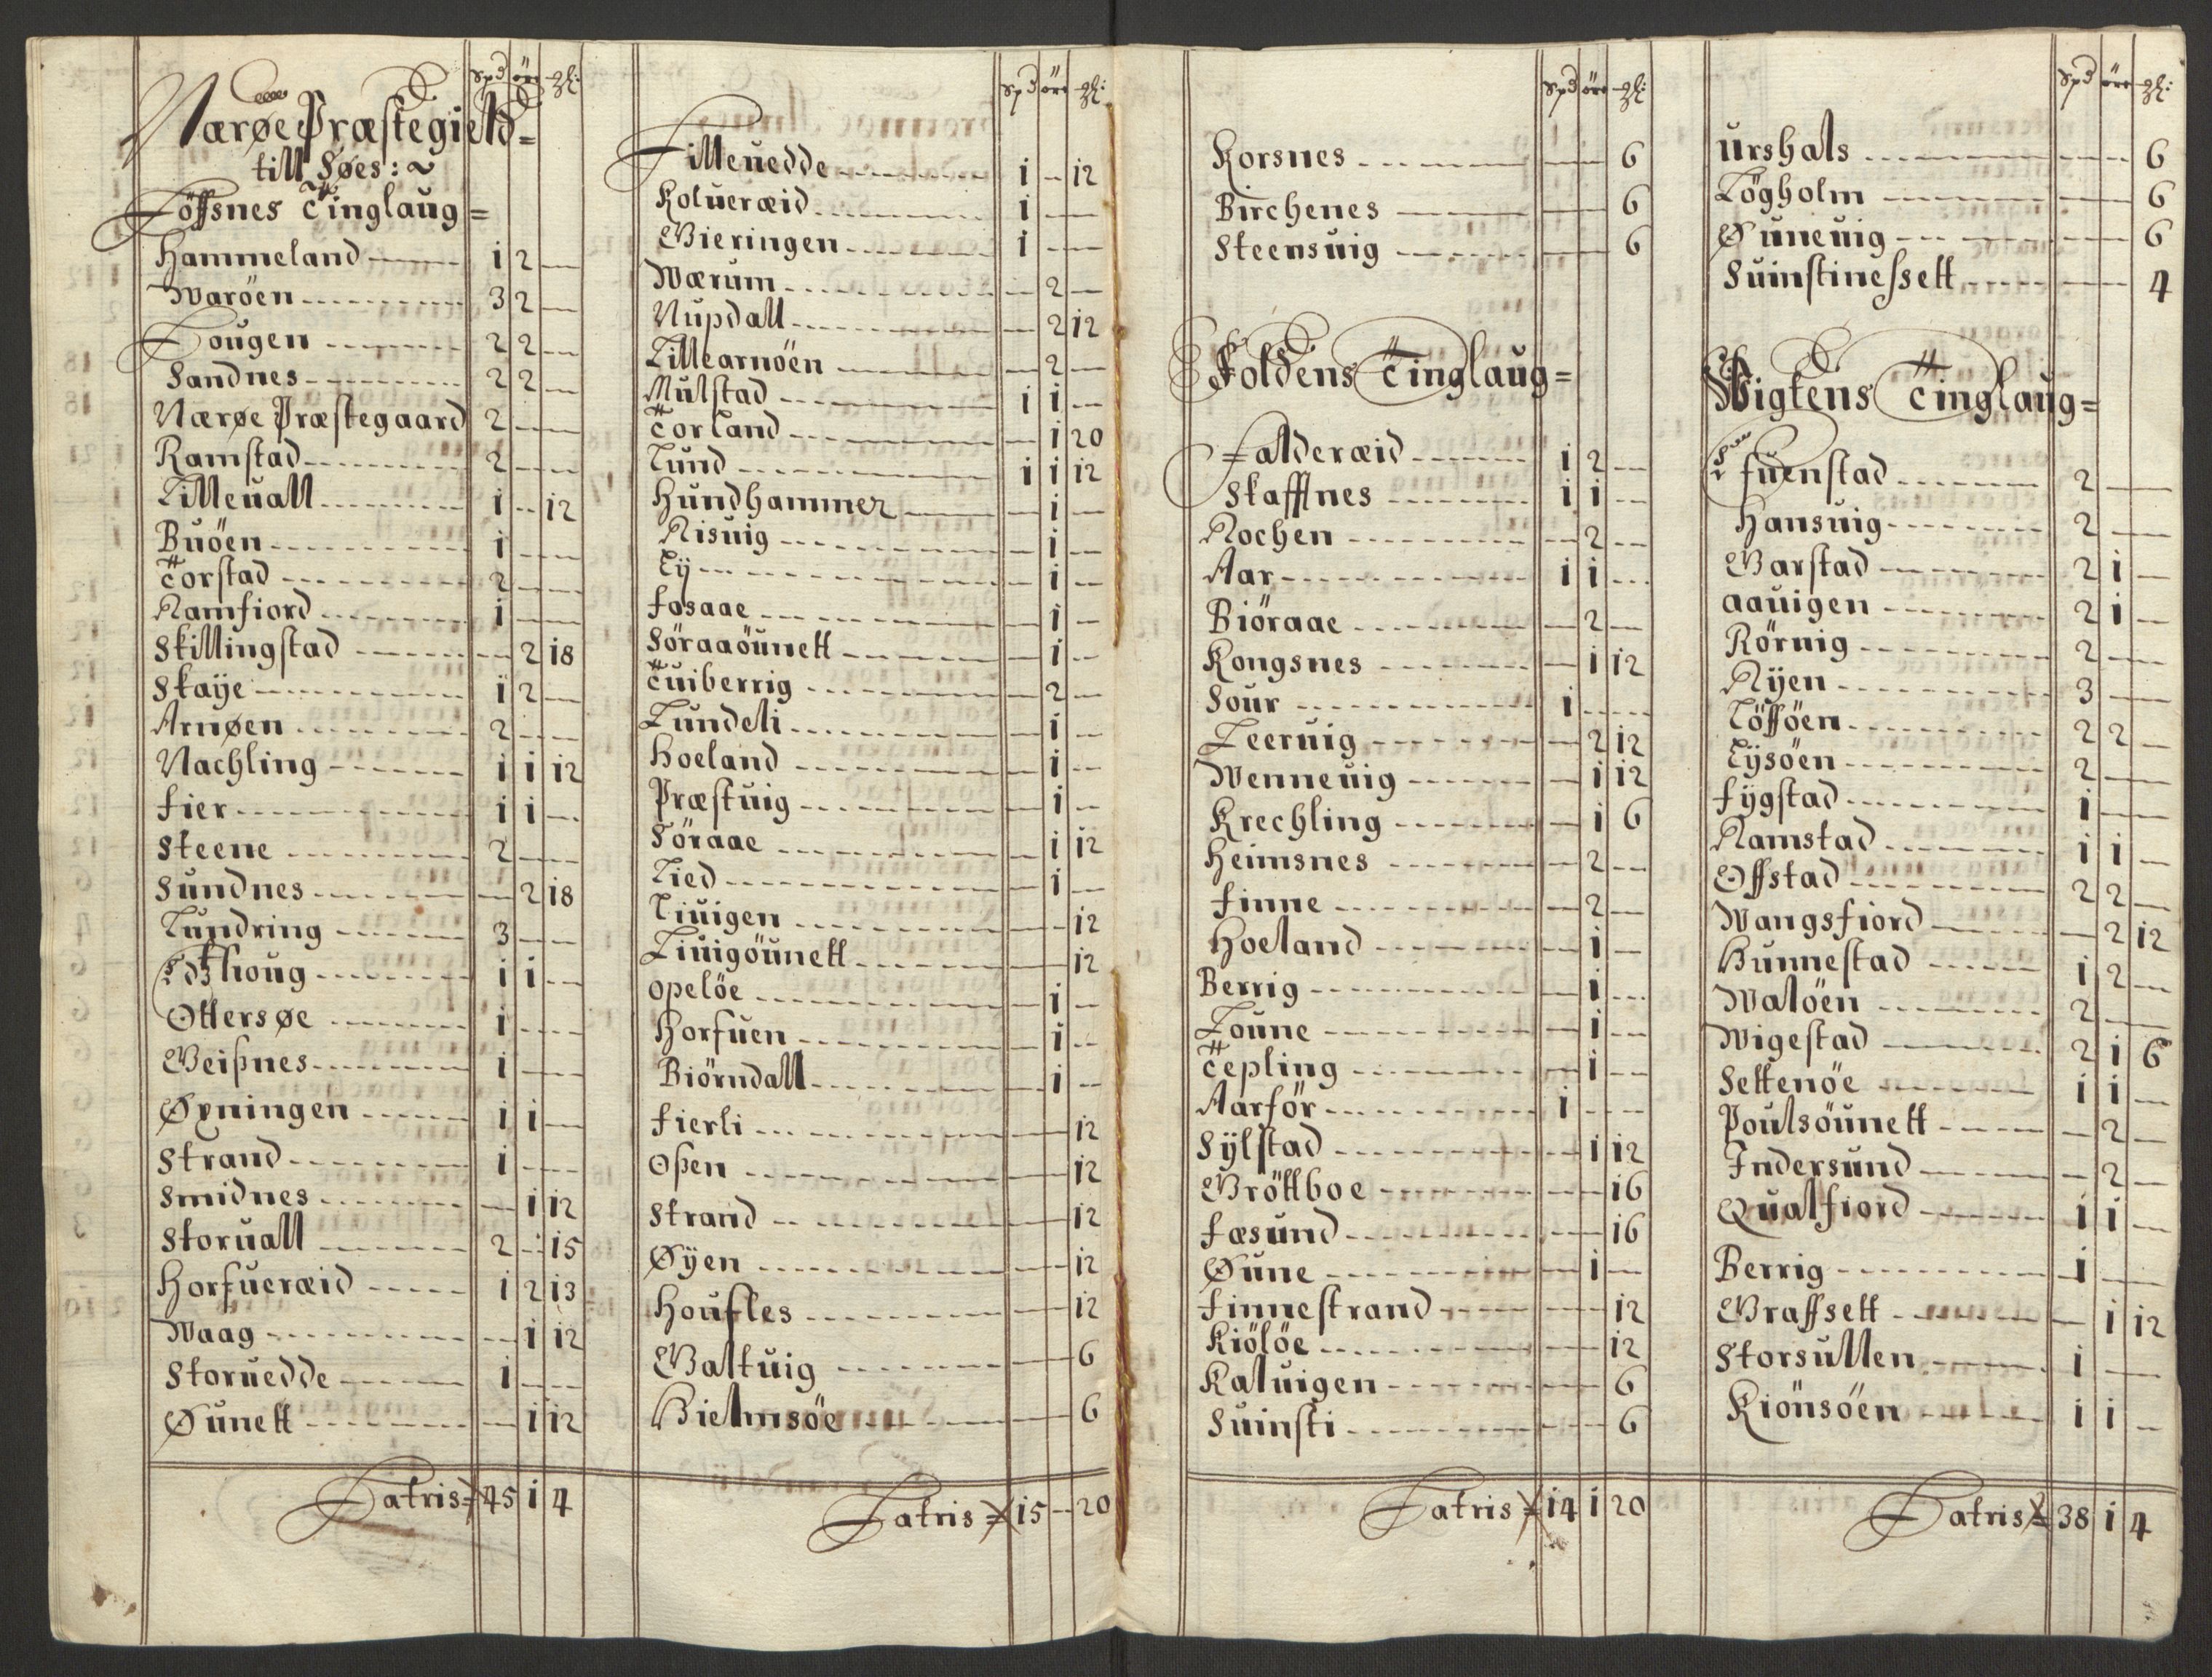 Spd öre gl:
Nærøe Præstegield=
till Søes:~
Föffsnes Tinglaug=
Hammeland 1 2 —
Waröen 3 2 —
Hougen 2 2 —
Sandnes 2 2 —
Nærøe Præstegaard 2 — —
Ramstad 2 — —
Lilleuall 1 — 12
Buöen 1 — —
Torstad 2 — —
Ramfiord 1 — —
Skillingstad — 2 18
Skaÿe 1 2 —
Arnøen 2 — —
Nachling 1 1 12
Fier 1 1 —
Steene 2 — —
Sundnes — 2 18
Lundring 3 — —
1 1 —
Ottersøe 1 — —
Geißnes 1 — —
Øxningen 1 1 —
Strand 1 — —
Smidnes — 1 12
Storuall 2 — 15
Horfueræid 1 2 13
Waag — 1 12
Storuedde 1 — —
Øunett — 1 12
Latris= 45 1 4
Spd öre gl:
Lilleuedde 1 — 12
Kolueræid 1 — —
Gieringen 1 — —
Wærum — 2 —
Nupdall — 2 12
Lillearnöen — 2 —
Mulstad 1 1 —
Torland — 1 20
Lund 1 1 12
Hundhammer — 1 —
Risuig — 1 —
Lÿ — 1 —
Fosaae — 1 —
Söraaöunett — 1 —
Tuiberrig — 2 —
Lundeli — 1 —
Hoeland — 1 —
Præstuig — 1 —
Söraae — 1 12
Lied — 1 —
Liuigen — — 12
Liuigöunett — — 12
Opelöe — 1 —
Horfuen — 1 —
Biörndall — 1 —
Fierli — — 12
Oßen — — 12
Strand — — 12
Øÿen — — 12
Houfles — — 12
Galtuig — — 6
Hielmsöe — — 6
Latris= 15 — 20
Spd öre gl:
Korsnes — — 6
Birchenes — — 6
Steensuig — — 6
Foldens Tinglaug=
Falderæid 1 2 —
Skafflnes 1 1 —
Rochen — 2 —
Aar 1 1 —
Biöraae — 2 —
Kongsnes — 1 12
Sour 1 — —
Leeruig — 2 12
Wenneuig — 1 12
Krechling — 1 6
Heimsnes — 2 —
Finne — 2 —
Hoeland — 1 —
Berrig — 1 —
Foune — 1 —
Tepling — 1 —
Aarför 1 — —
Sÿlstad — 1 12
Gröttboe — — 16
Fæsund — — 16
Øune — 1 —
Finnestrand — — 12
Kiölöe — — 12
Kaluigen — — 6
Suinsti — — 6
Latris= 14 1 20
Spd öre gl:
Urshals — — 6
Högholm — — 6
Øuneuig — — 6
Suinstinessett — — 4
Wigtens Tinglaug=
Efuenstad 2 — —
Hansuig 2 — —
Garstad 2 1 —
Aauigen 2 1 —
Rörnig 2 — —
Rÿen 3 — —
Löffoen 2 2 —
Lÿsöen 2 — —
Fÿgstad 1 — —
Ramstad 1 1 —
Offstad 2 2 —
Wangsfiord — 2 12
Hunnestad 1 2 —
Walöen 2 — —
Wigestad 2 1 6
Settenöe 1 1 —
Poulsöunett — 2 —
Indersund — 2 —
Qualfiord 1 1 —
Berrig 1 — —
Graffsett — 1 12
Storsullen 1 — —
Kiönsöen 1 1 —
Latris= 38 1 4